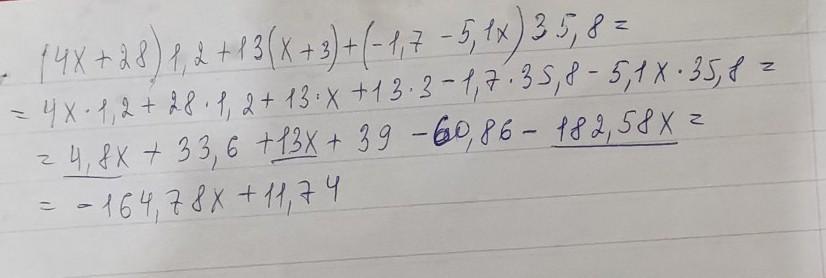 (4x + 28) 1,2 + 13(x + 3) + (-1,7 - 5,1x) 35,8 =
= 4x · 1,2 + 28 · 1,2 + 13 · x + 13 · 3 - 1,7 · 35,8 - 5,1x · 35,8 =
= 4,8x + 33,6 + 13x + 39 - 60,86 - 182,58x =
= -164,78x + 11,74